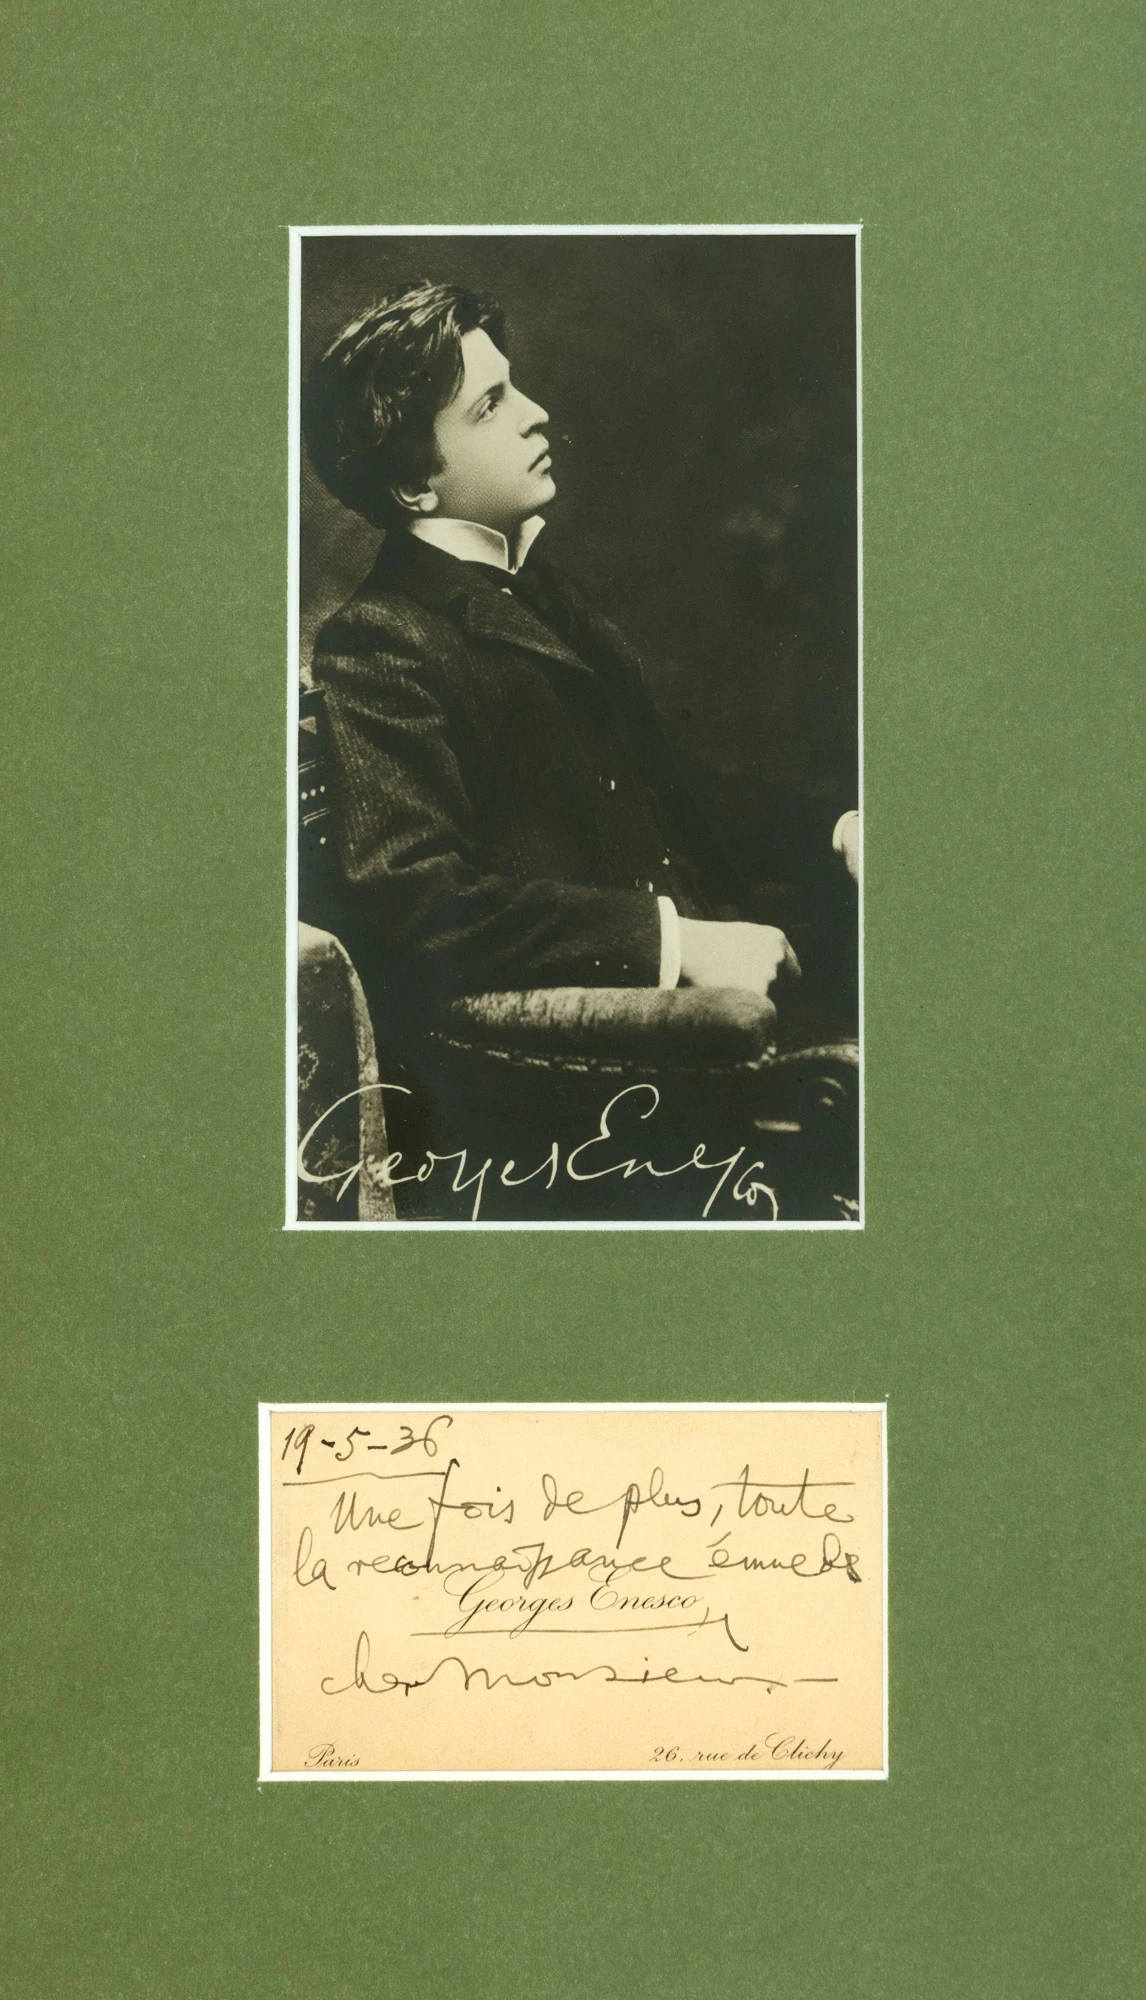 Georges Enesco
19-5-36
Une fois de plus, toute
la reconnaissance émue de
Georges Enesco,
cher Monsieur. —
Paris
26, rue de Clichy